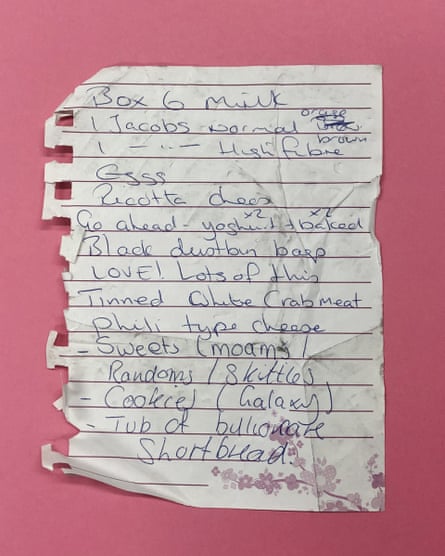 Box 6 Milk
1 Jacobs normal orange
1 - " - High fibre brown
Eggs
Ricotta chees
Go ahead - yoghurt x2 + baked x2
Black dustbin bags
LOVE! Lots of this
Tinned White Crab meat
Phili type cheese
- Sweets (moams /
Randoms / Skittles
- Cookies (Galaxy)
- Tub of billionare
Shortbread.